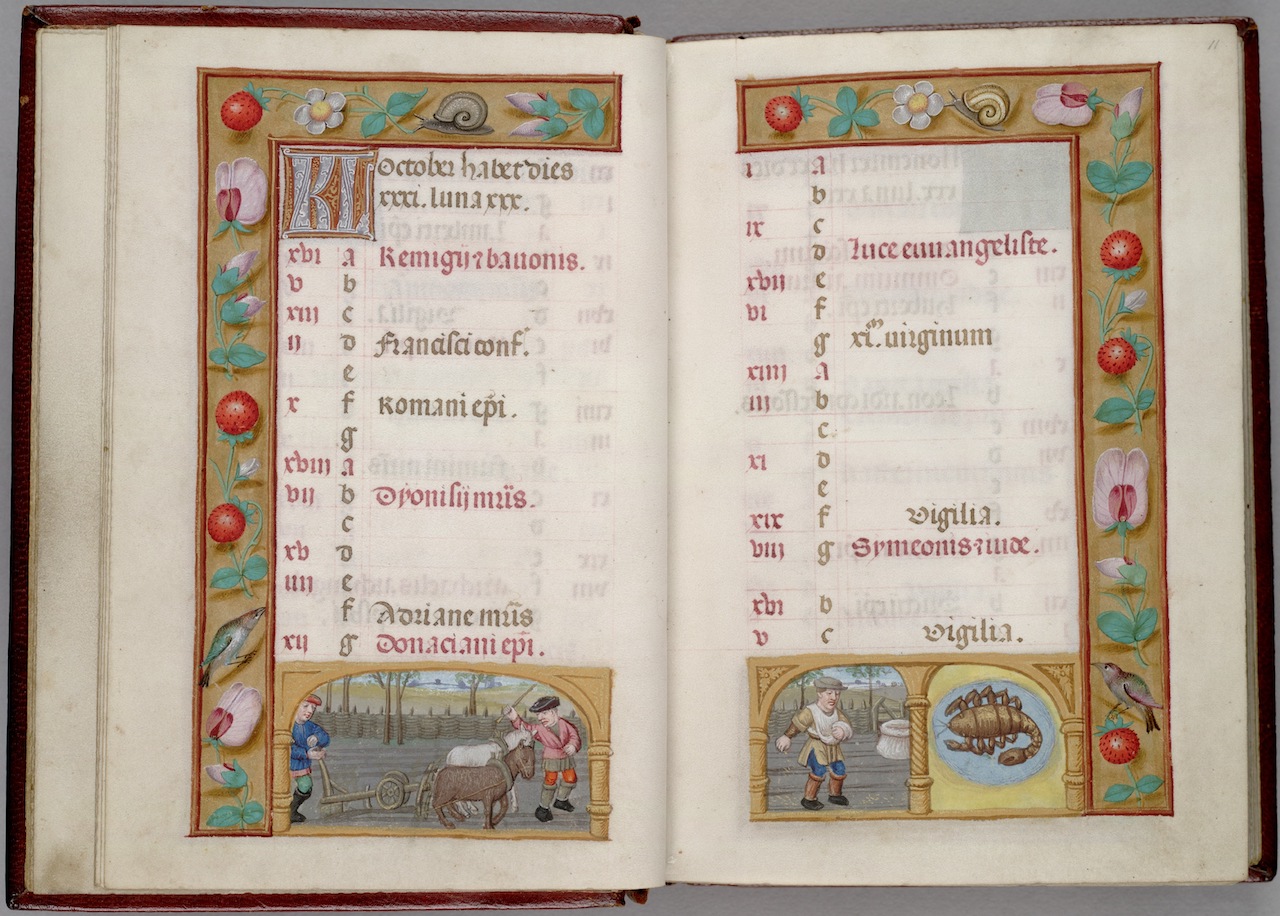 KL October habet dies
xxxi. luna xxx.
xvi a Remigij ⁊ bavonis.
v b
xiii c
ii d Francisci conf.
e
x f Romani ep̄i.
g
xviii a
vii b Dyonisij mr̄is.
c
xv d
iiii e
f Adriane mr̄is
xii g Donaciani ep̄i.
11
i a
b
ix c
d Luce euuangeliste.
xvii e
vi f
g xi.ͫ virginum
xiiii a
iii b
c.
xi d
e
xix f vigilia.
viii g Symeonis ⁊ iude.
xvi b
v c vigilia.